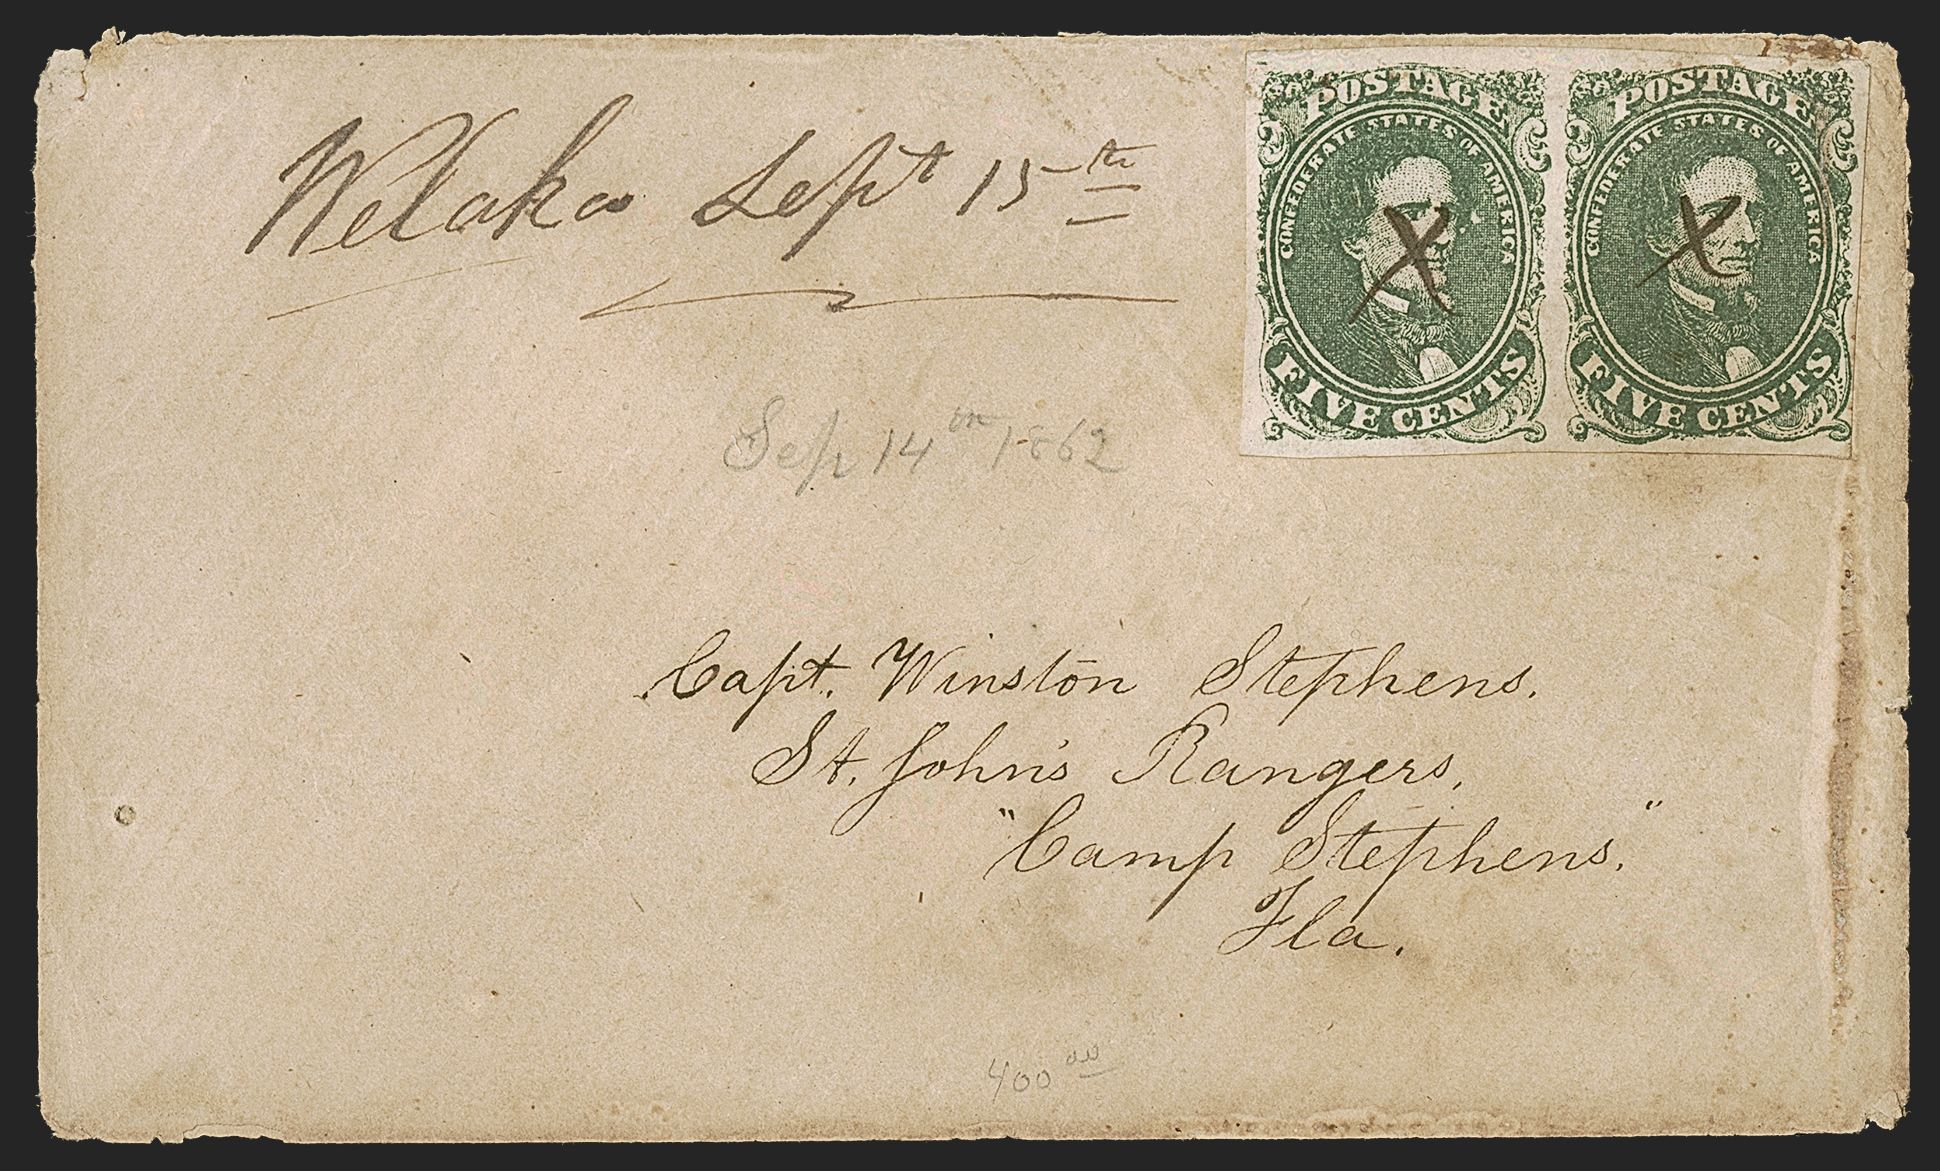 Welaka Sept 15th
POSTAGE
CONFEDERATE STATES OF AMERICA
FIVE CENTS
POSTAGE
CONFEDERATE STATES OF AMERICA
FIVE CENTS
X
X
Sep 14th 1862
Capt. Winston Stephens.
St. John's Rangers.
"Camp Stephens."
Fla.
400 00